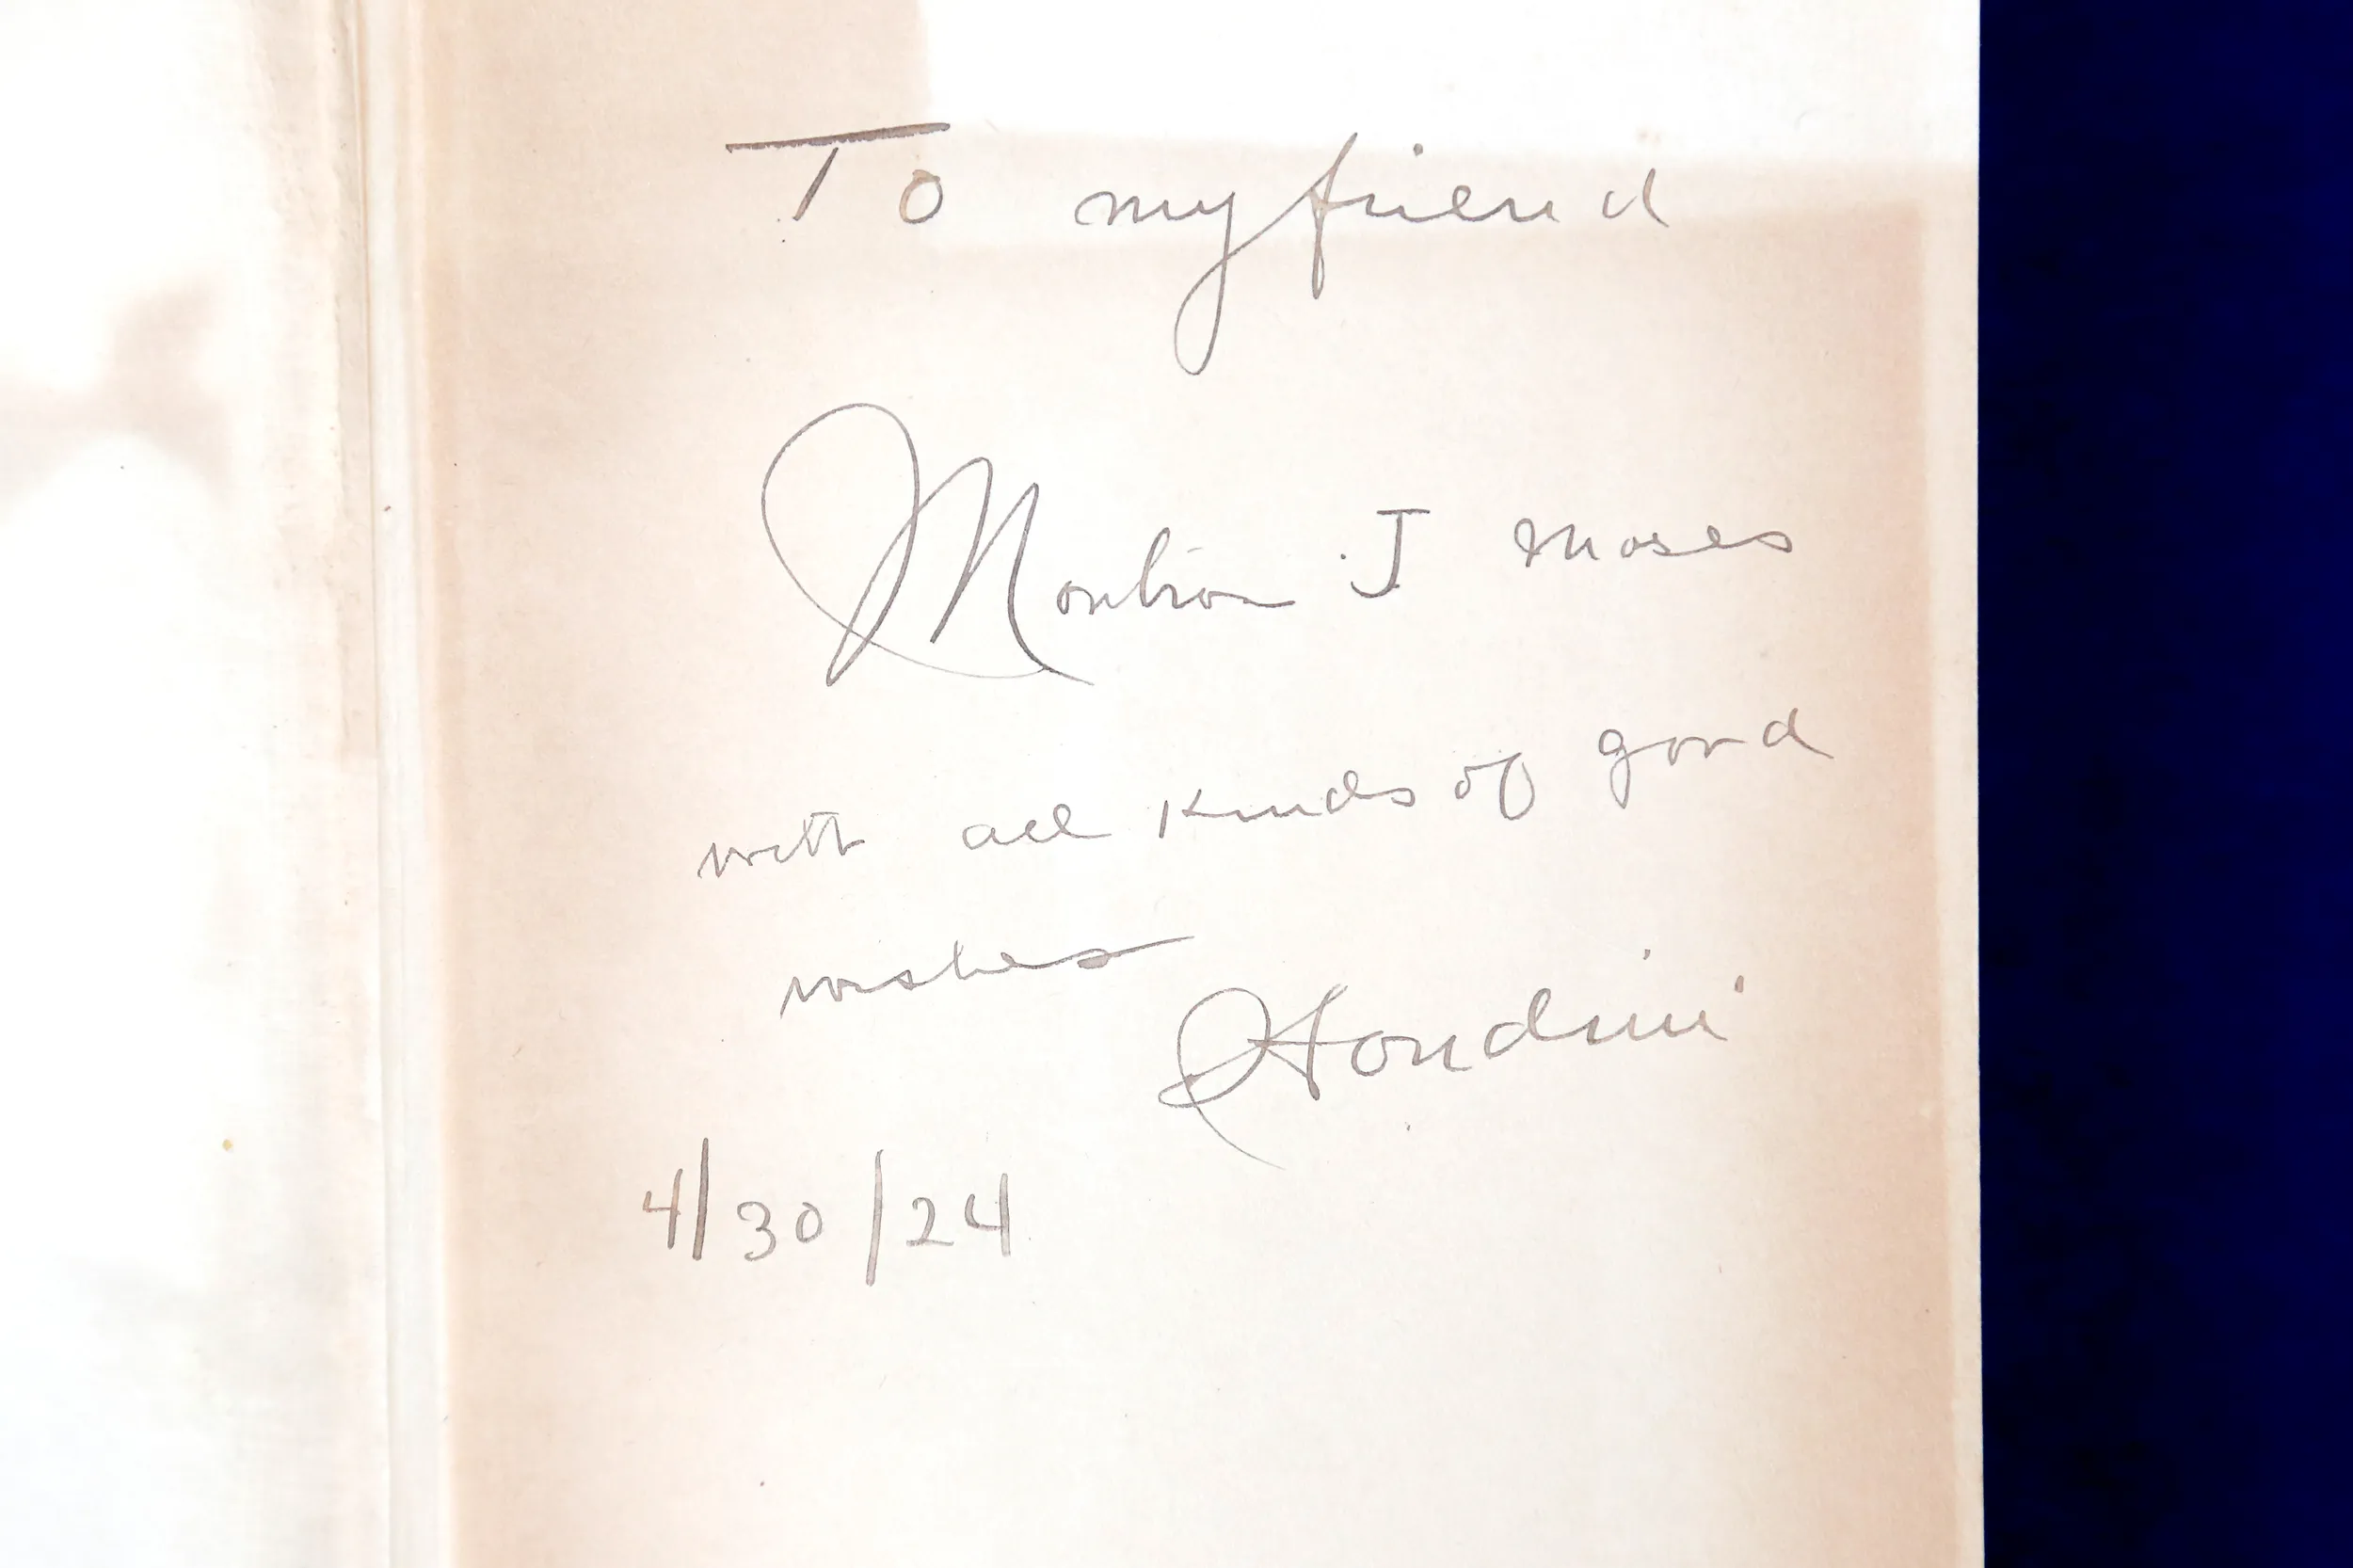 To my friend
Montrose J Moses
with all kinds of good
wishes
Houdini
4/30/24